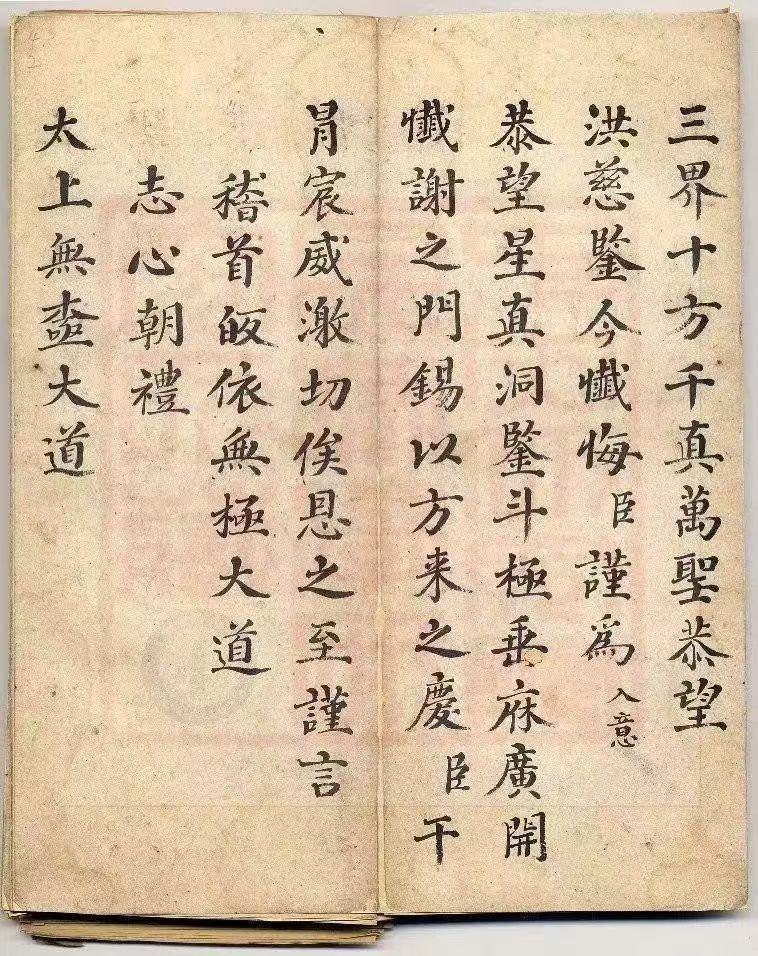 三界十方千真萬聖恭望
洪慈鑒今懺悔臣謹爲入意
恭望星真洞鑒斗極垂庥廣開
懺謝之門錫以方来之慶臣干
冐宸威激切俟恩之至謹言
稽首皈依無極大道
志心朝禮
太上無大道